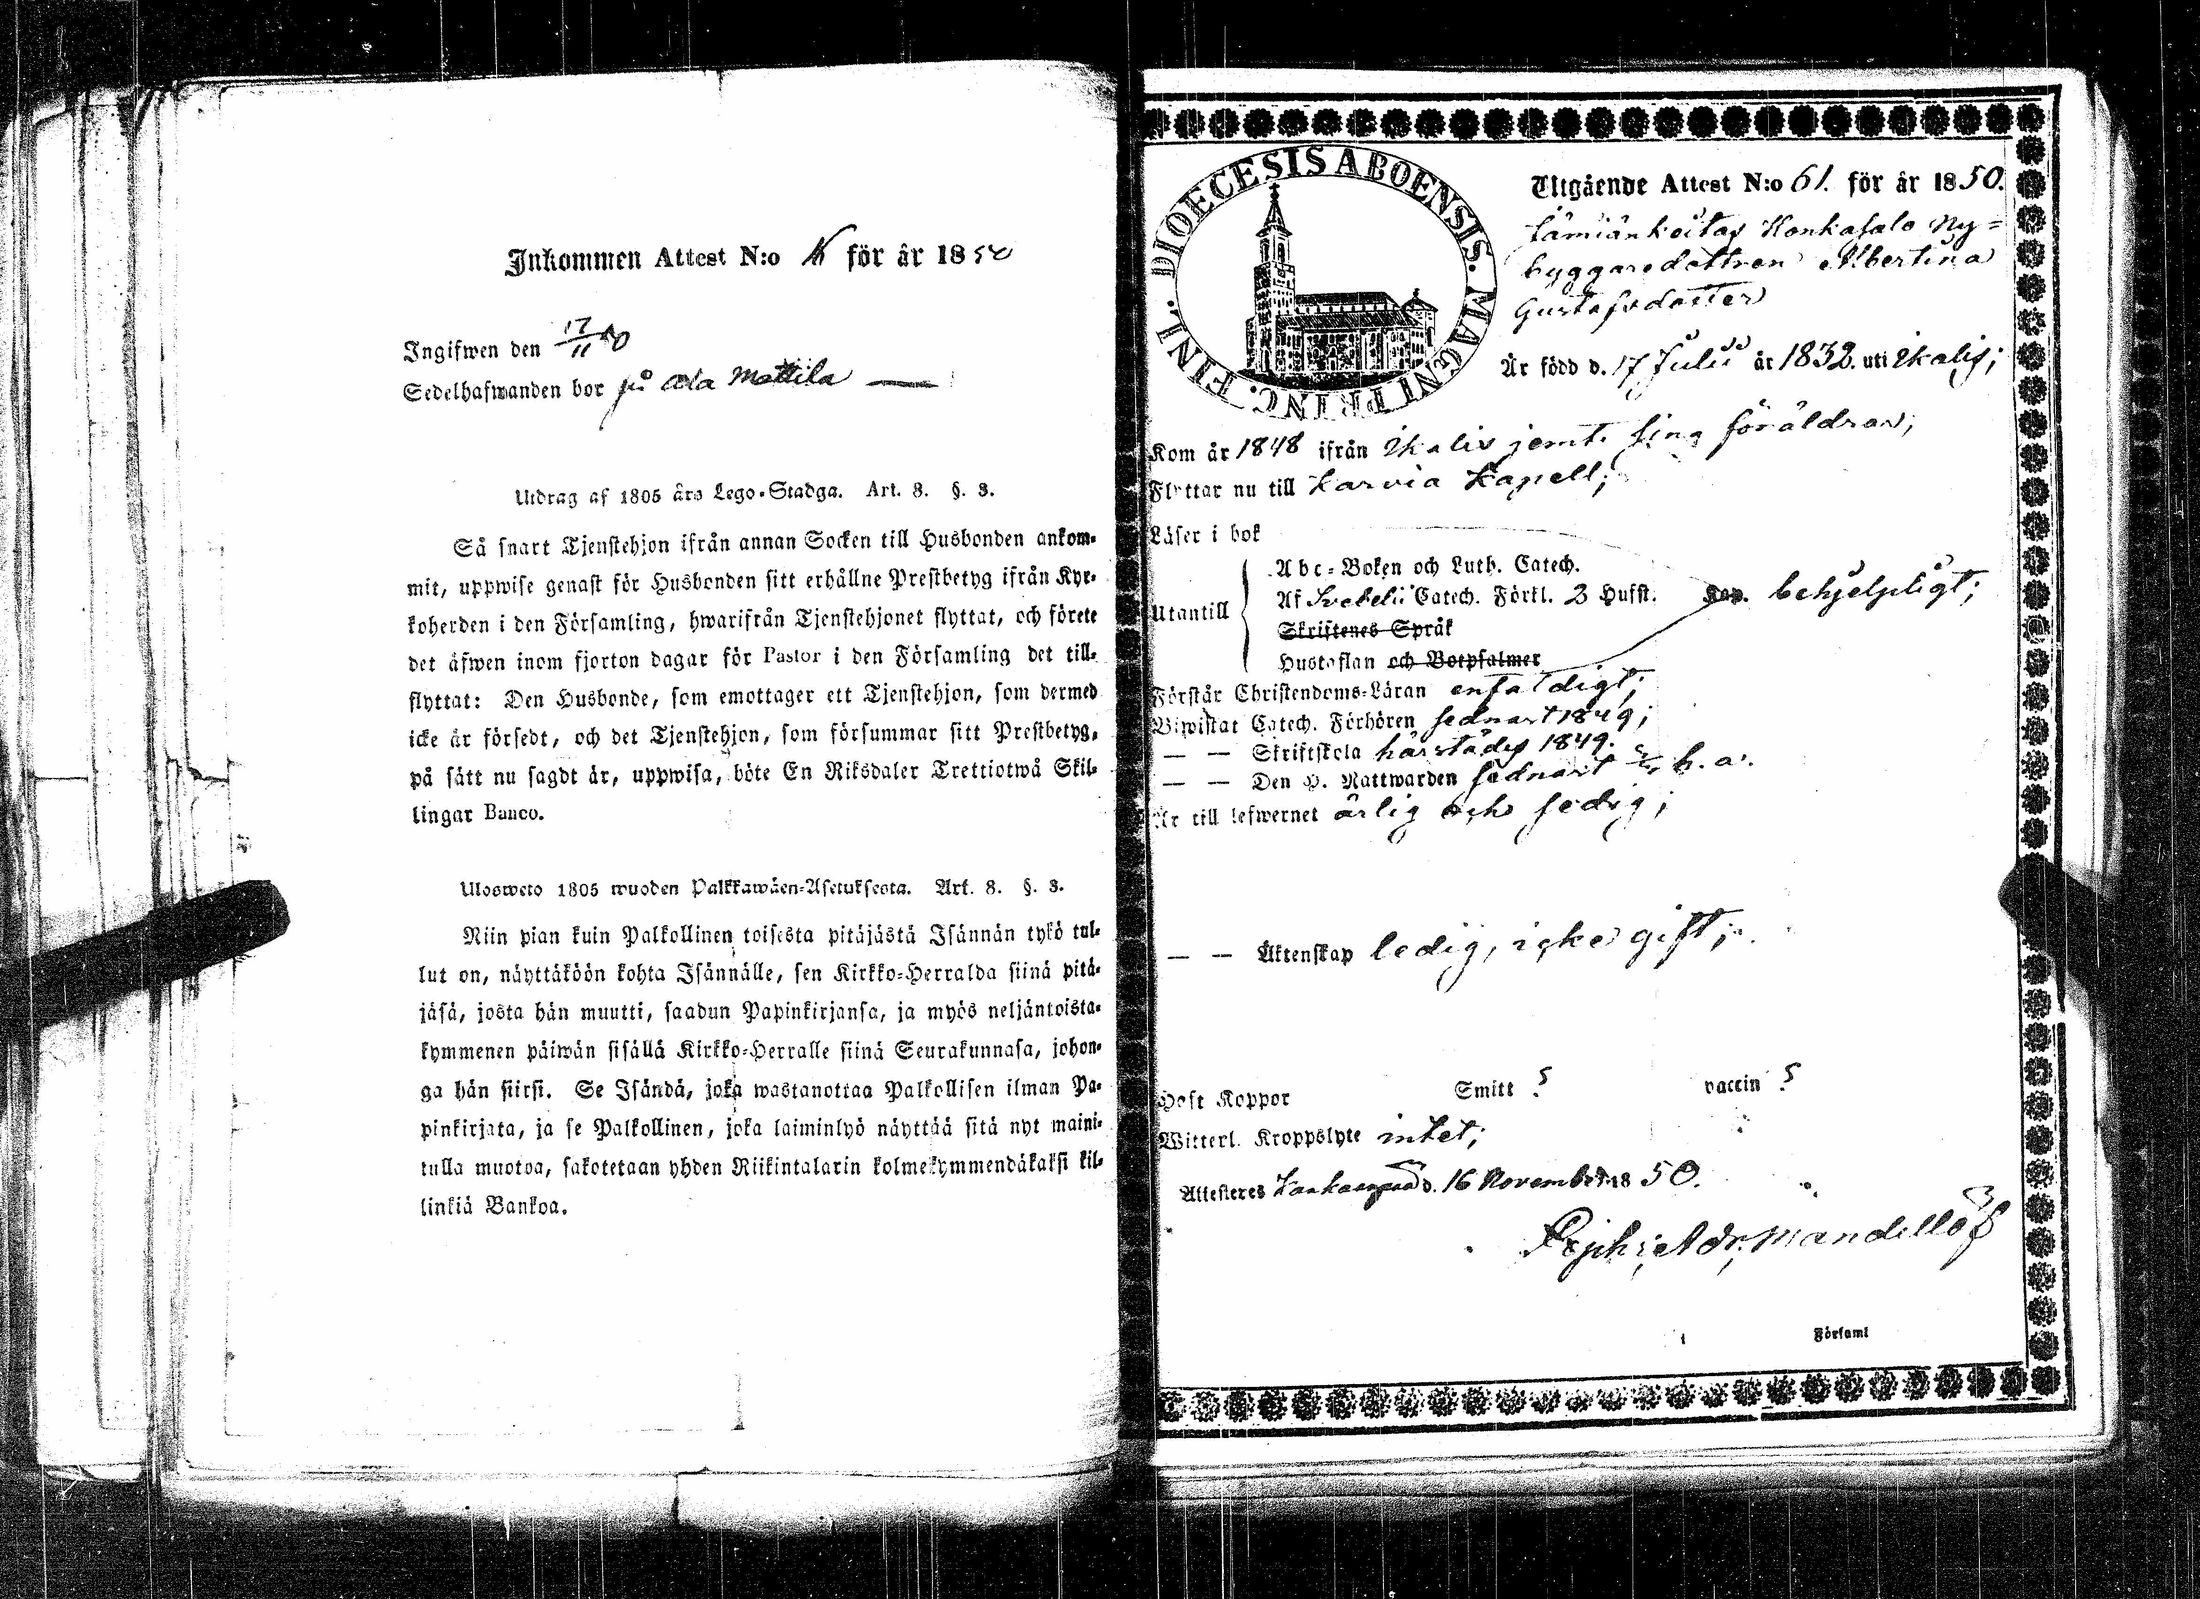 Inkommen Attest N:o för år 1850
Ingifwen den 17/11 50
Sedelhafwanden bor på Ala Mattila
Utdrag af 1805 års Lego-Stadga. Art. 8. §. 3.
Så snart Tjenstehjon ifrån annan Socken till Husbonden ankom-
mit, uppwise genast för Husbonden sitt erhållne Prestbetyg ifrån Kyr-
koherden i den Församling, hwarifrån Tjenstehjonet flyttat, och förete
det äfwen inom fjorton dagar för Pastor i den Församling det till-
flyttat: Den Husbonde, som emottager ett Tjenstehjon, som dermed
icke är försedt, och det Tjenstehjon, som försummar sitt Prestbetyg,
på sätt nu sagdt är, uppwisa, böte En Riksdaler Trettiotwå Skil-
lingar Banco.
Ulosweto 1805 wuoden Palkkawäen-Asetuksesta. Art. 8. §. 3.
Niin pian kuin Palkollinen toisesta pitäjästä Isännän tykö tul-
lut on, näyttäköön kohta Isännälle, sen Kirkko-Herralda siinä pitä-
jäsä, josta hän muutti, saadun Papinkirjansa, ja myös neljäntoista-
kymmenen päiwän sisällä Kirkko-Herralle siinä Seurakunnasa, johon-
ga hän siirsi. Se Isändä, joka wastanottaa Palkollisen ilman Pa-
pinkirjata, ja se Palkollinen, joka laiminlyö näyttää sitä nyt maini-
tulla muotoa, sakotetaan yhden Riikintalarin kolmekymmendäkaksi kil-
linkiä Bankoa.
DIOECESIS ABOENSIS. MAGNI PRINC. FINL.
Utgående Attest N:o 61. för år 1850.
Jämiänkeitas Honkasalo Ny=
byggaredottren Albertina
Gustafsdotter
Är född d. 17 Julii år 1832. uti Ikalis;
Kom år 1848 ifrån Ikalis jemte sina föräldrar;
Flyttar nu till Karvia Kapell;
Läser i bok
Utantill
Abc-Boken och Luth. Catech.
Af Svebelii Catech. Förkl. 3 Hufst. Kap. behjelpligt;
Skriftenes Språk
Hustaflan och Botpsalmer
Förstår Christendoms-Läran enfaldigt;
Biwistat Catech. Förhören sednast 1849;
— — Skriftskola härstädes 1849.
— — Den H. Nattwarden sednast h. a.
Är till lefwernet ärlig och sedig;
— — Äktenskap ledig, icke gift;
Haft Koppor Smitt ? vaccin ?
Witterl. Kroppslyte intet;
Attesteres Kankaanpää d. 16 November 1850.
Adr. Mandellöf
Församl